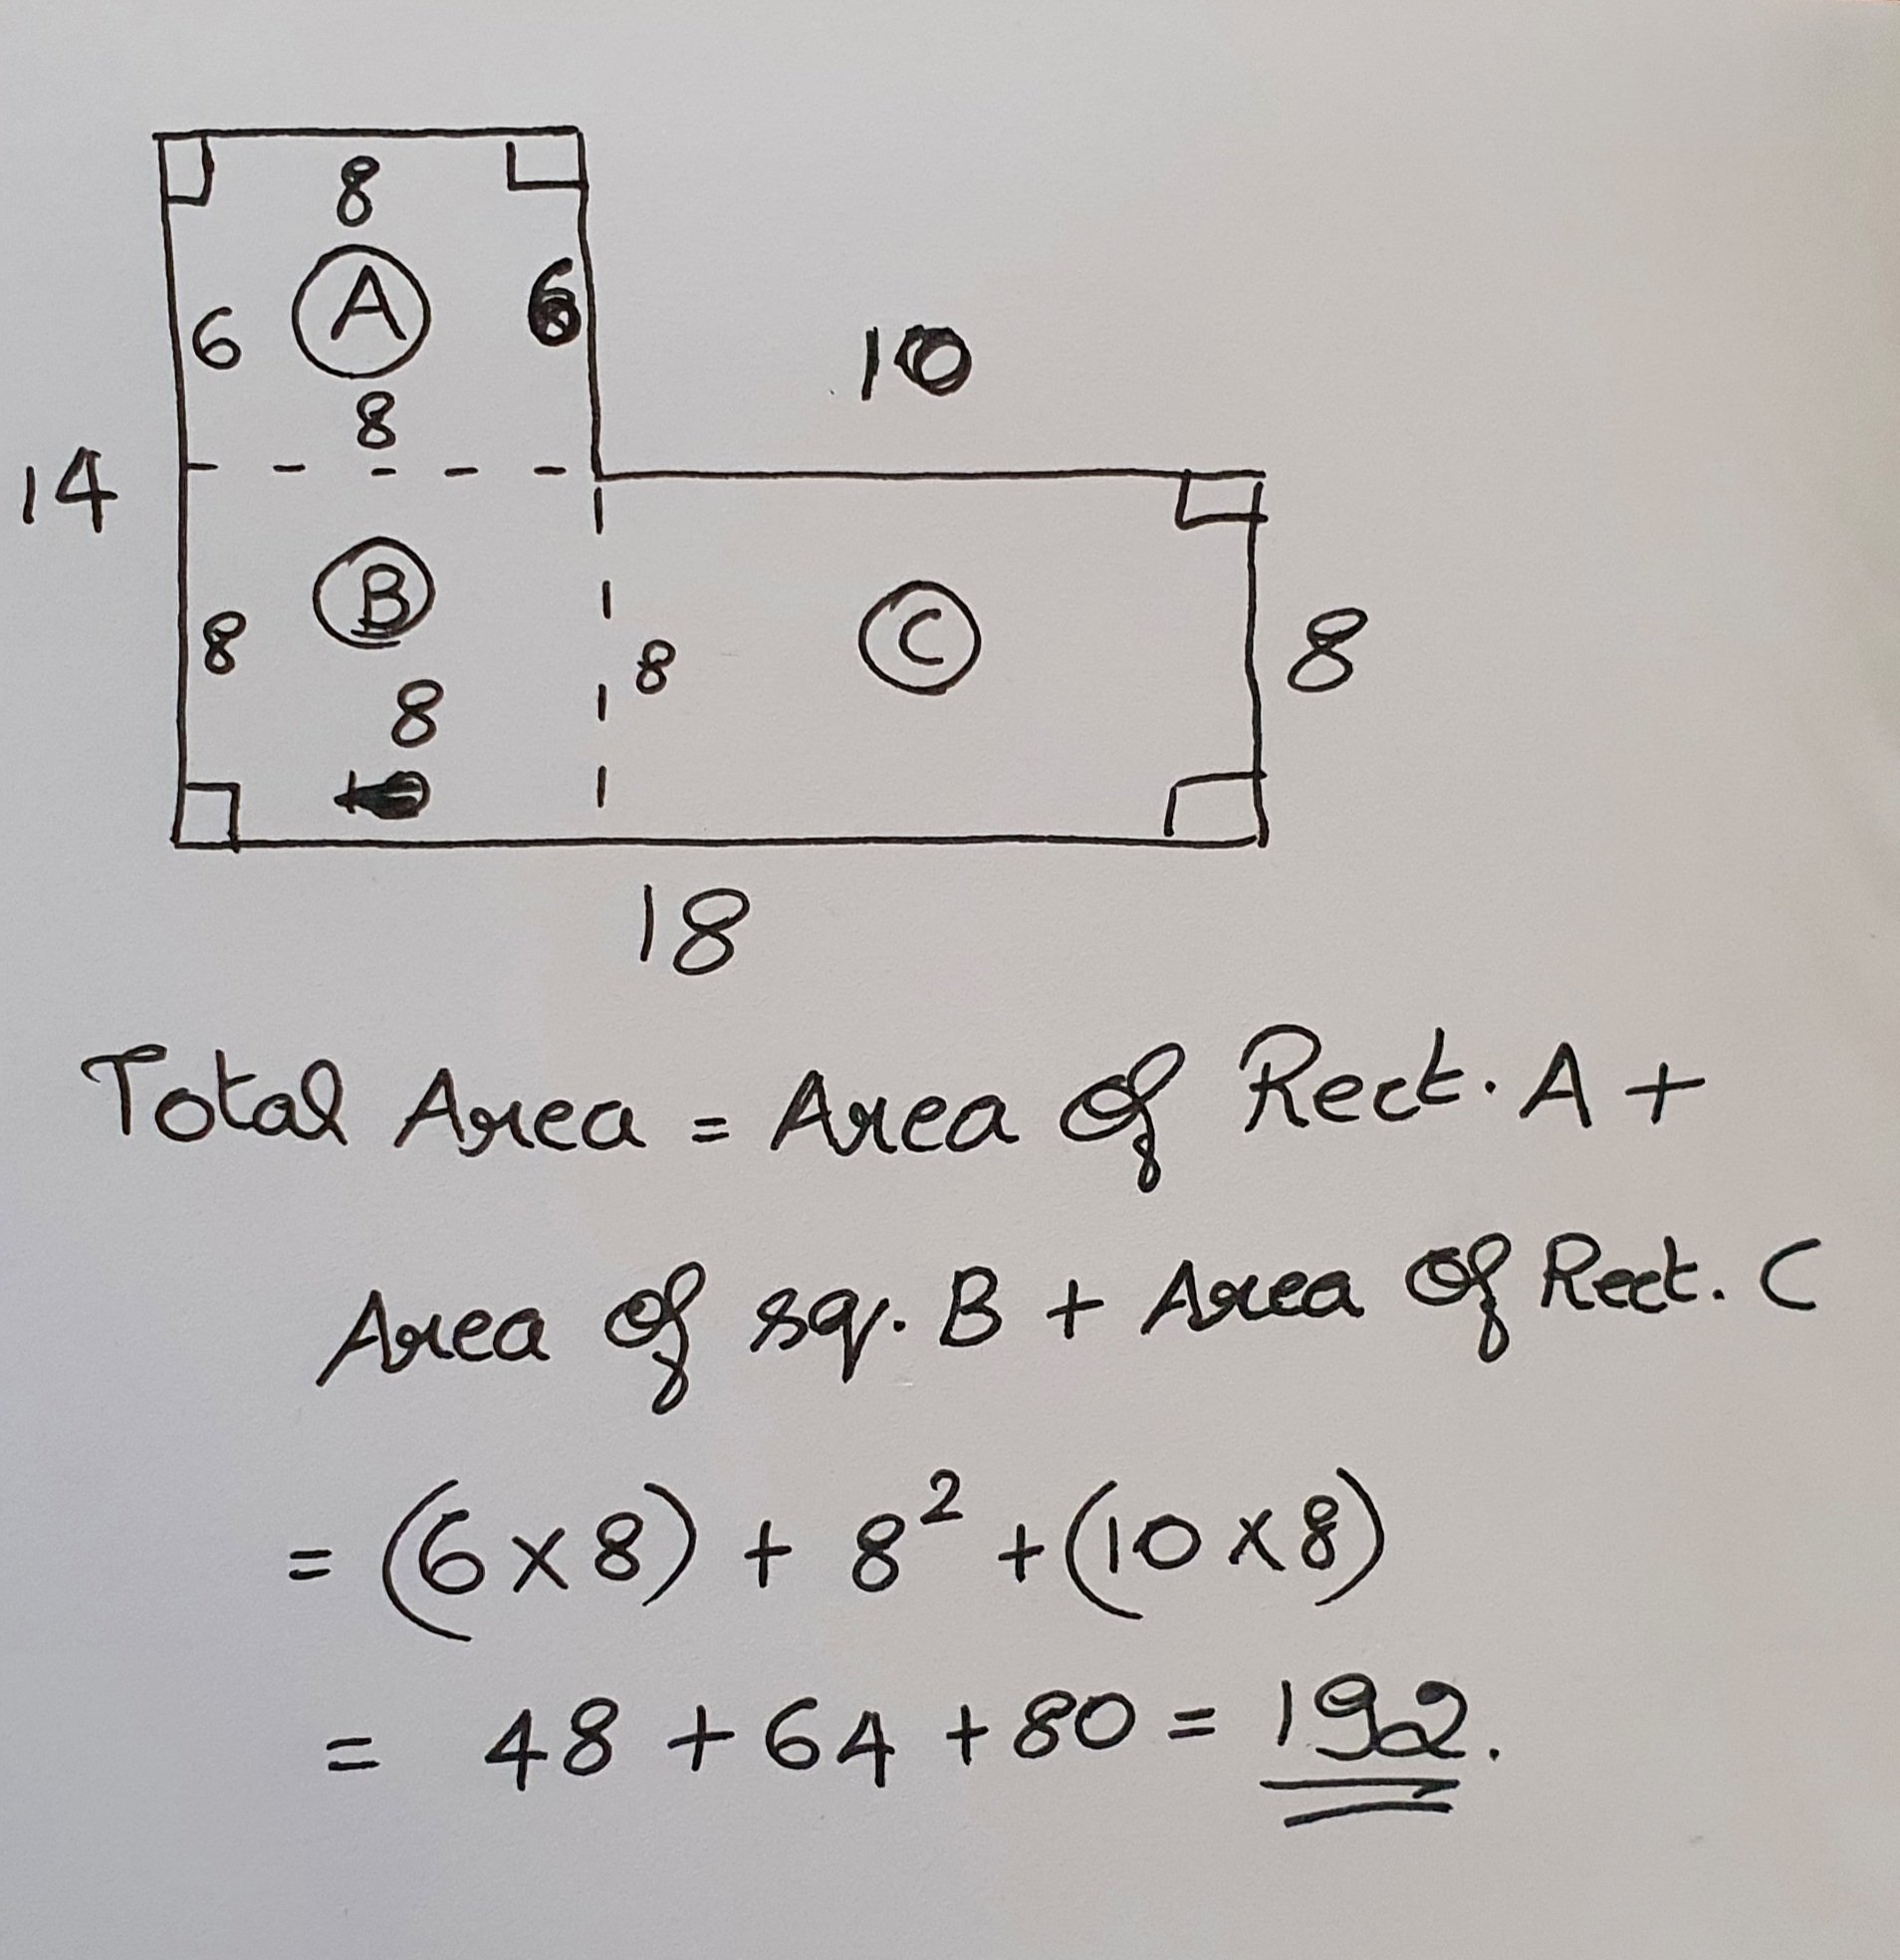 8
A
6 6
8
10
14
B
8
8
8
C
8
18
Total Area = Area Of Rect. A +
Area Of sq. B + Area Of Rect. C
= (6 x 8) + 8² + (10 x 8)
= 48 + 64 + 80 = 192.